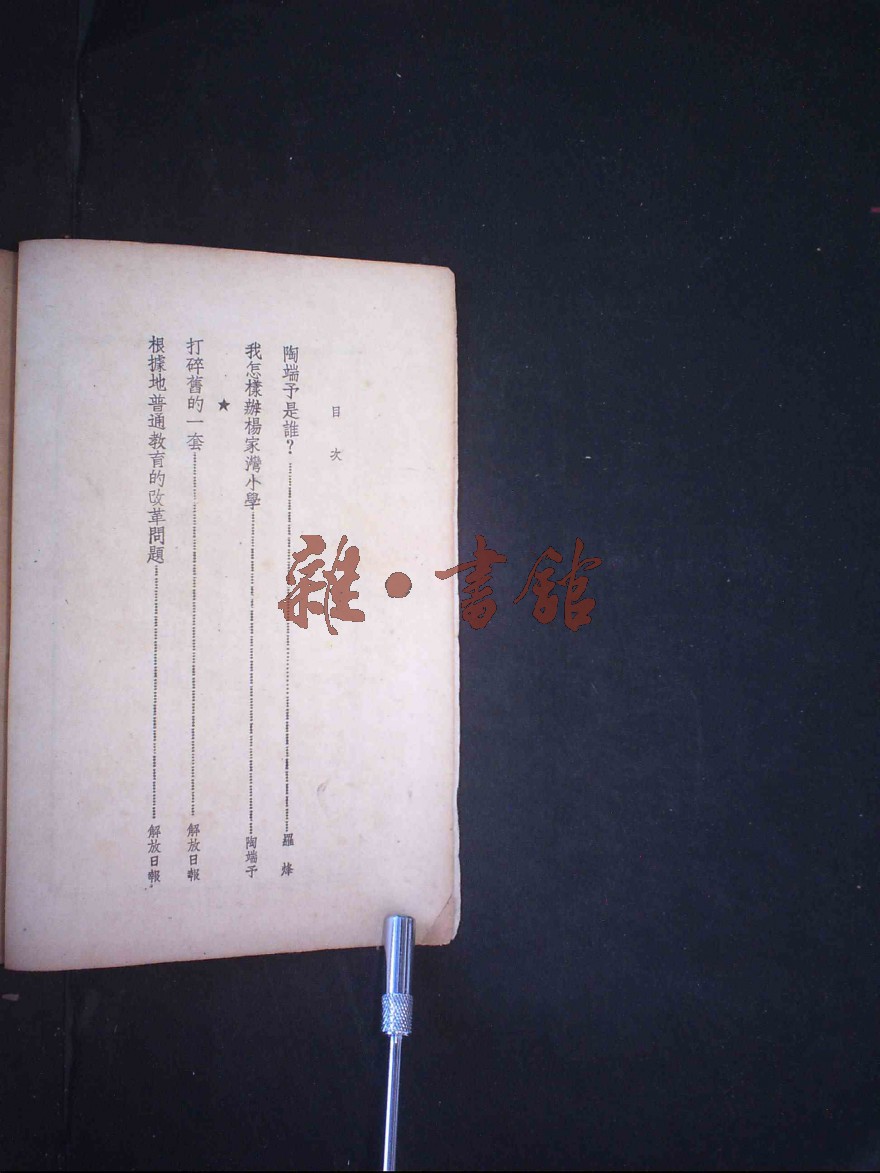 目次
陶端予是誰？……羅烽
我怎樣辦楊家灣小學……陶端予
★
打碎舊的一套……解放日報
根據地普通教育的改革問題……解放日報
雜·書館